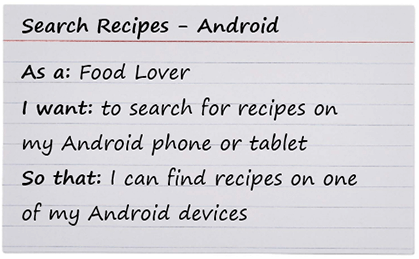 Search Recipes - Android
As a: Food Lover
I want: to search for recipes on
my Android phone or tablet
So that: I can find recipes on one
of my Android devices